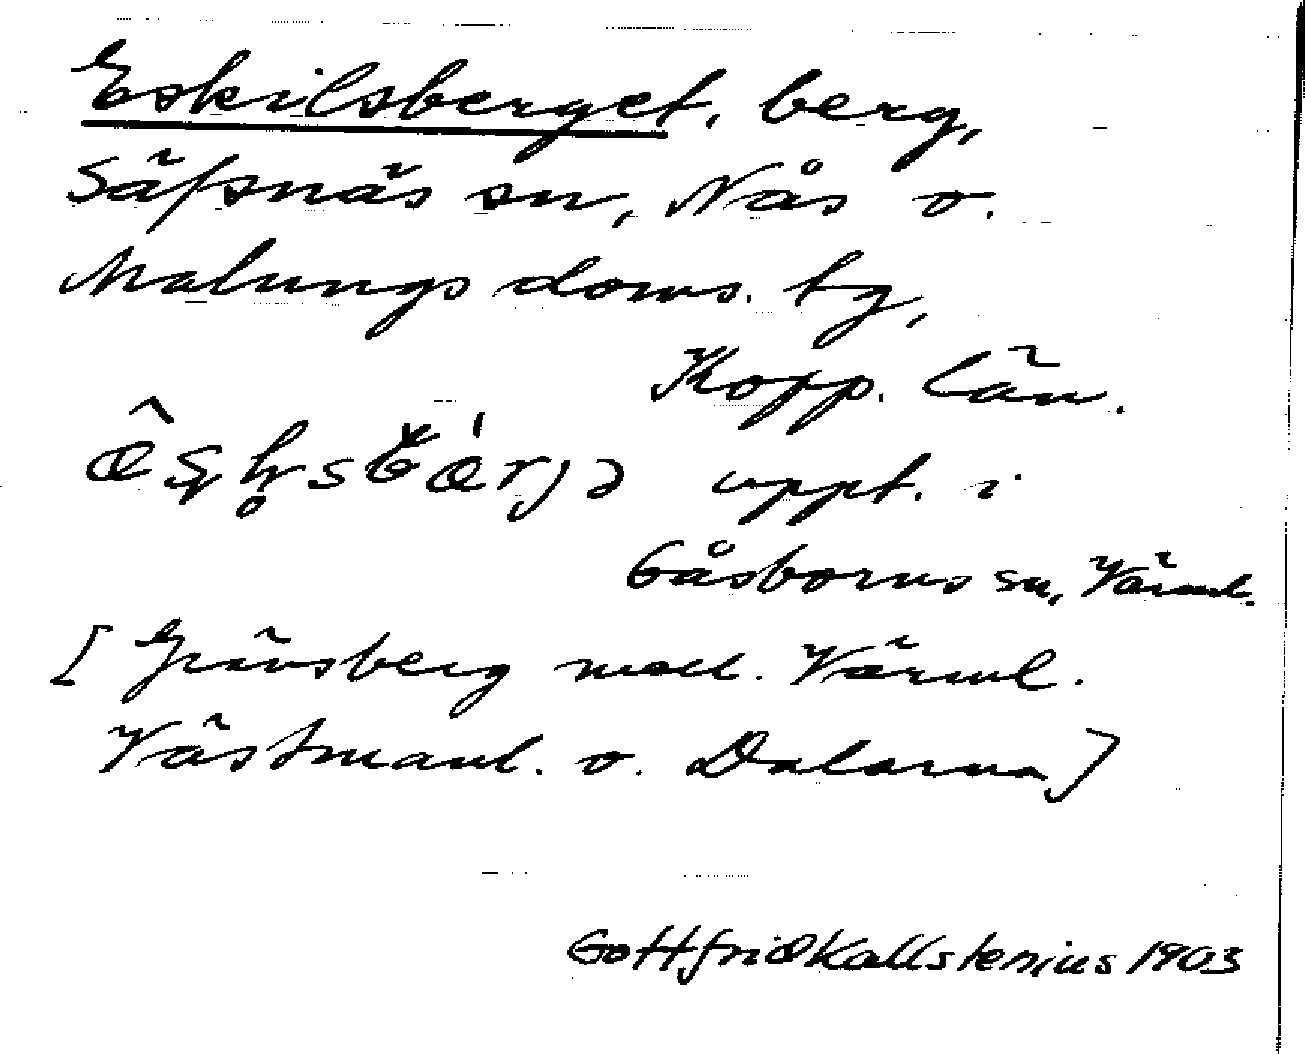 Eskilsberget, berg,
Säfsnäs sn, Nås o.
Malungs doms. hg,
Kopp. län.
uppt. i
Gåsborns sn, Värml.
[Gränsberg mell. Värml.
Västmanl. o. Dalarna]
Gottfrid Kallstenius 1903